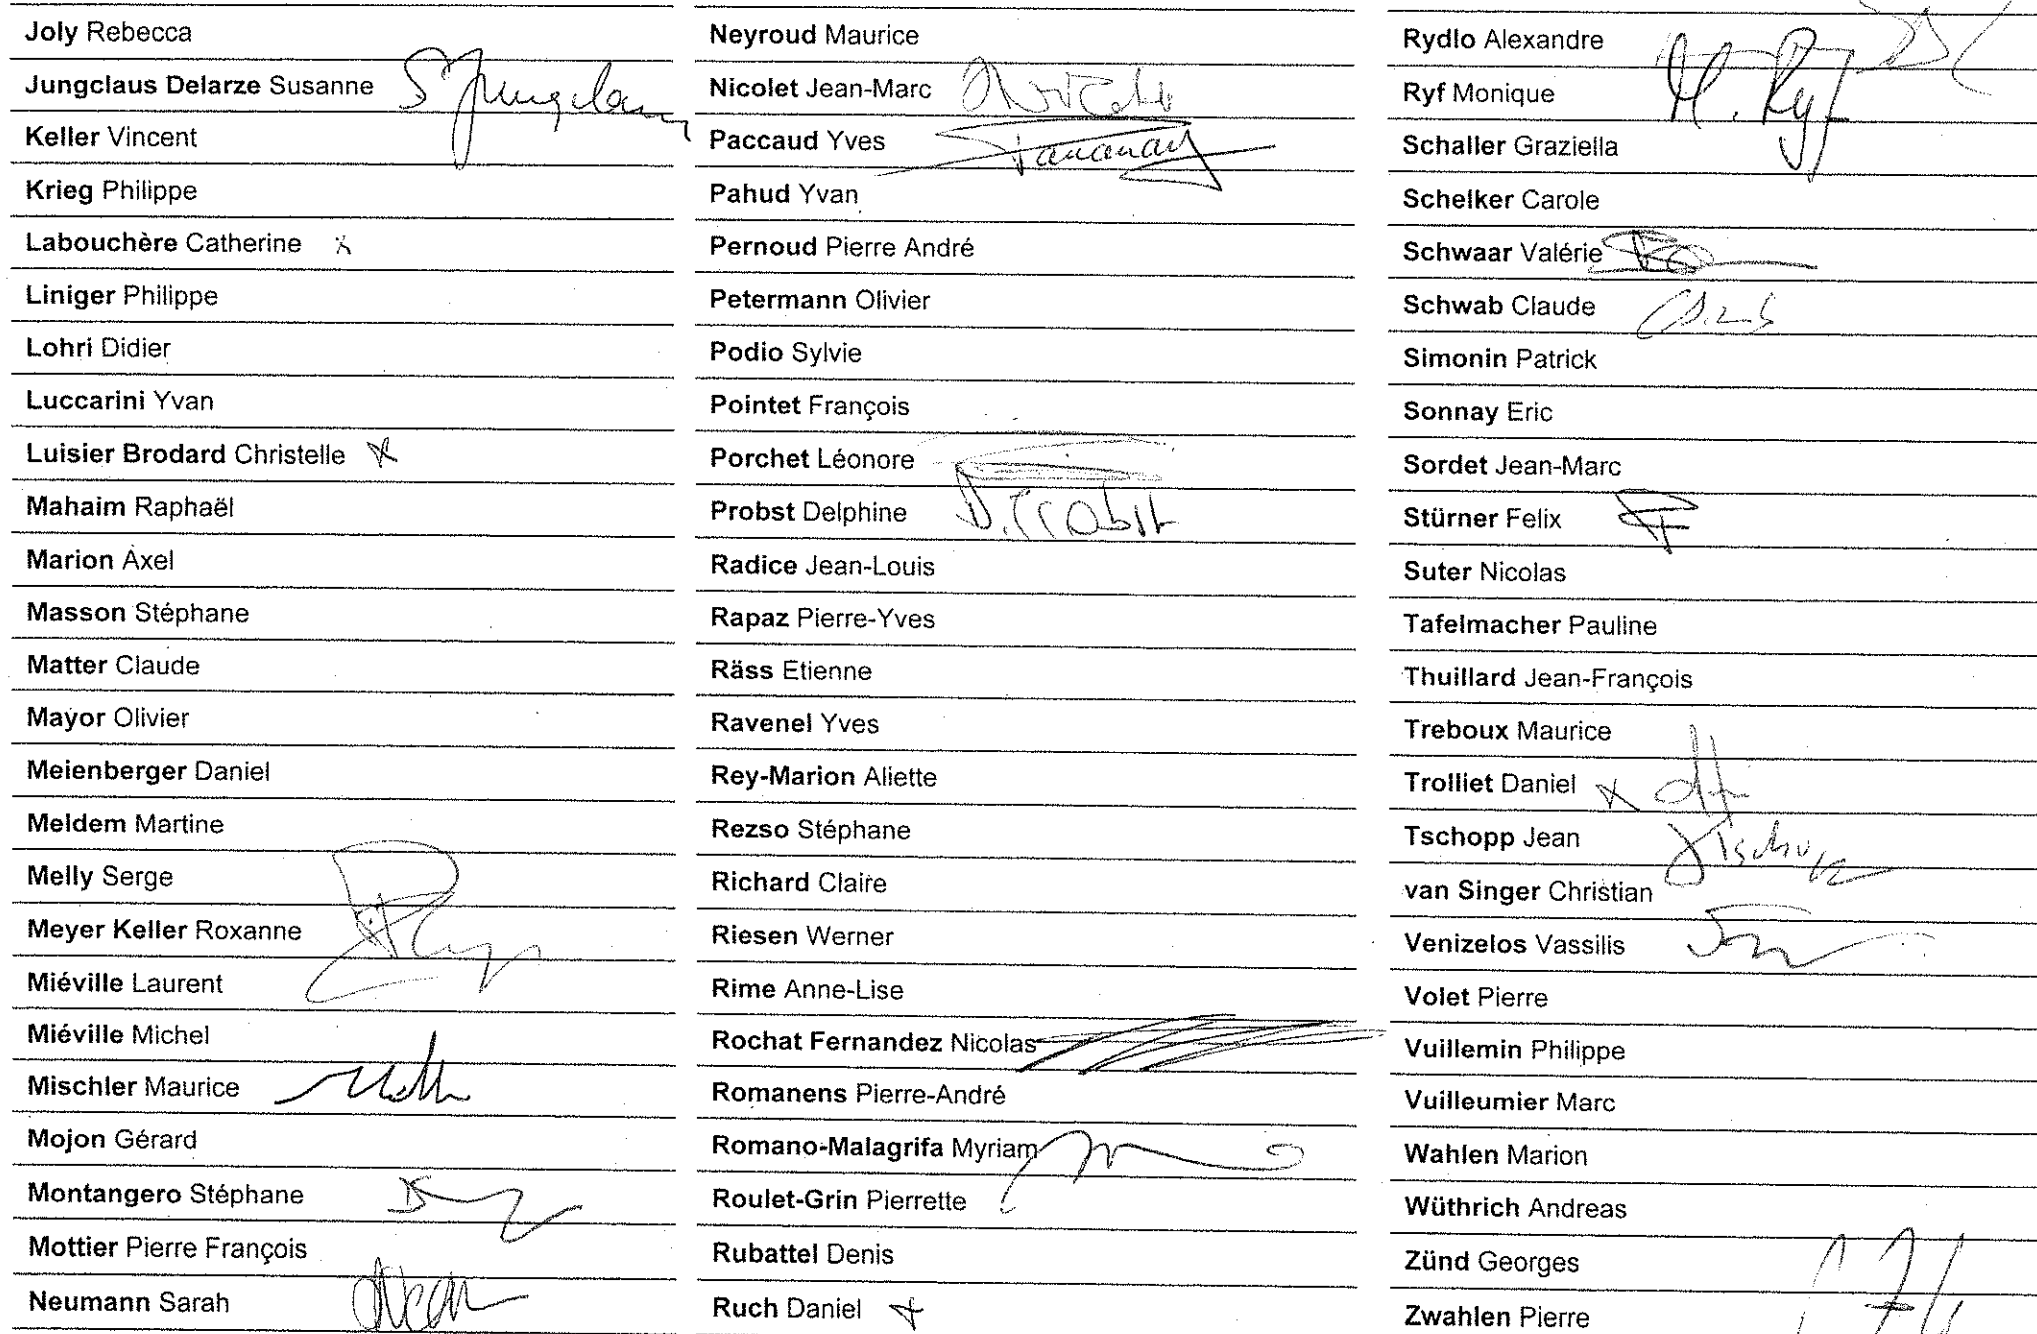 Joly Rebecca
Jungclaus Delarze Susanne S Jungclaus
Keller Vincent
Krieg Philippe
Labouchère Catherine x
Liniger Philippe
Lohri Didier
Luccarini Yvan
Luisier Brodard Christelle x
Mahaim Raphaël
Marion Axel
Masson Stéphane
Matter Claude
Mayor Olivier
Meienberger Daniel
Meldem Martine
Melly Serge
Meyer Keller Roxanne
Miéville Laurent
Miéville Michel
Mischler Maurice
Mojon Gérard
Montangero Stéphane
Mottier Pierre François
Neumann Sarah
Neyroud Maurice
Nicolet Jean-Marc
Paccaud Yves
Pahud Yvan
Pernoud Pierre André
Petermann Olivier
Podio Sylvie
Pointet François
Porchet Léonore
Probst Delphine D. Probst
Radice Jean-Louis
Rapaz Pierre-Yves
Räss Etienne
Ravenel Yves
Rey-Marion Aliette
Rezso Stéphane
Richard Claire
Riesen Werner
Rime Anne-Lise
Rochat Fernandez Nicolas
Romanens Pierre-André
Romano-Malagrifa Myriam
Roulet-Grin Pierrette
Rubattel Denis
Ruch Daniel x
Rydlo Alexandre
Ryf Monique M. Ryf
Schaller Graziella
Schelker Carole
Schwaar Valérie
Schwab Claude
Simonin Patrick
Sonnay Eric
Sordet Jean-Marc
Stürner Felix
Suter Nicolas
Tafelmacher Pauline
Thuillard Jean-François
Treboux Maurice
Trolliet Daniel x
Tschopp Jean
van Singer Christian
Venizelos Vassilis
Volet Pierre
Vuillemin Philippe
Vuilleumier Marc
Wahlen Marion
Wüthrich Andreas
Zünd Georges
Zwahlen Pierre